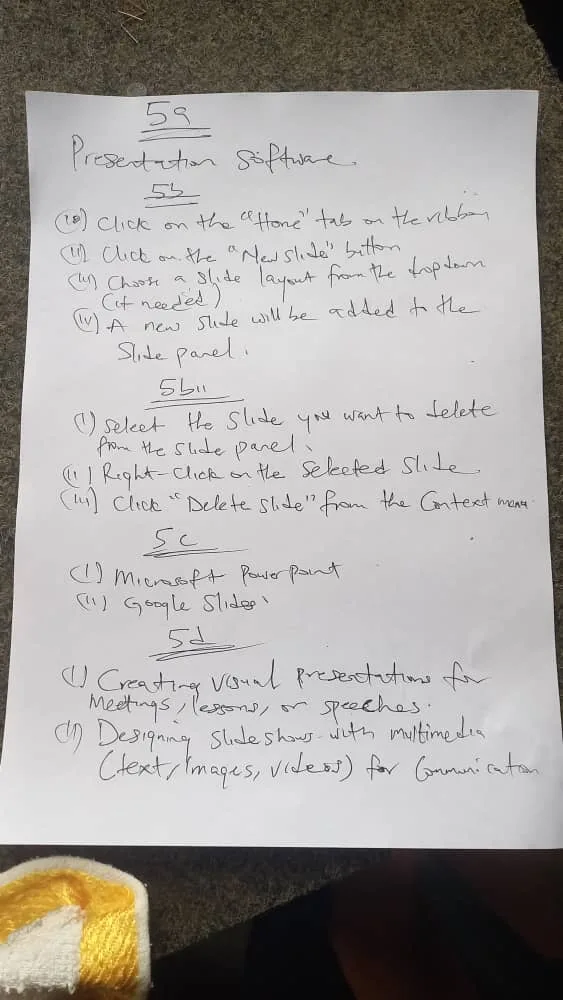 5a
Presentation software.
5b
(i) Click on the "Home" tab on the ribbon
(ii) Click on the "New slide" button
(iii) Choose a slide layout from the dropdown
(if needed)
(iv) A new slide will be added to the
Slide panel.
5bii
(i) Select the slide you want to delete
from the slide panel.
(ii) Right-click on the selected slide.
(iii) Click "Delete slide" from the Context menu.
5c
(i) Microsoft PowerPoint
(ii) Google Slides.
5d
(i) Creating visual presentations for
Meetings, lessons, or speeches.
(ii) Designing slideshows with multimedia
(text, images, videos) for Communication